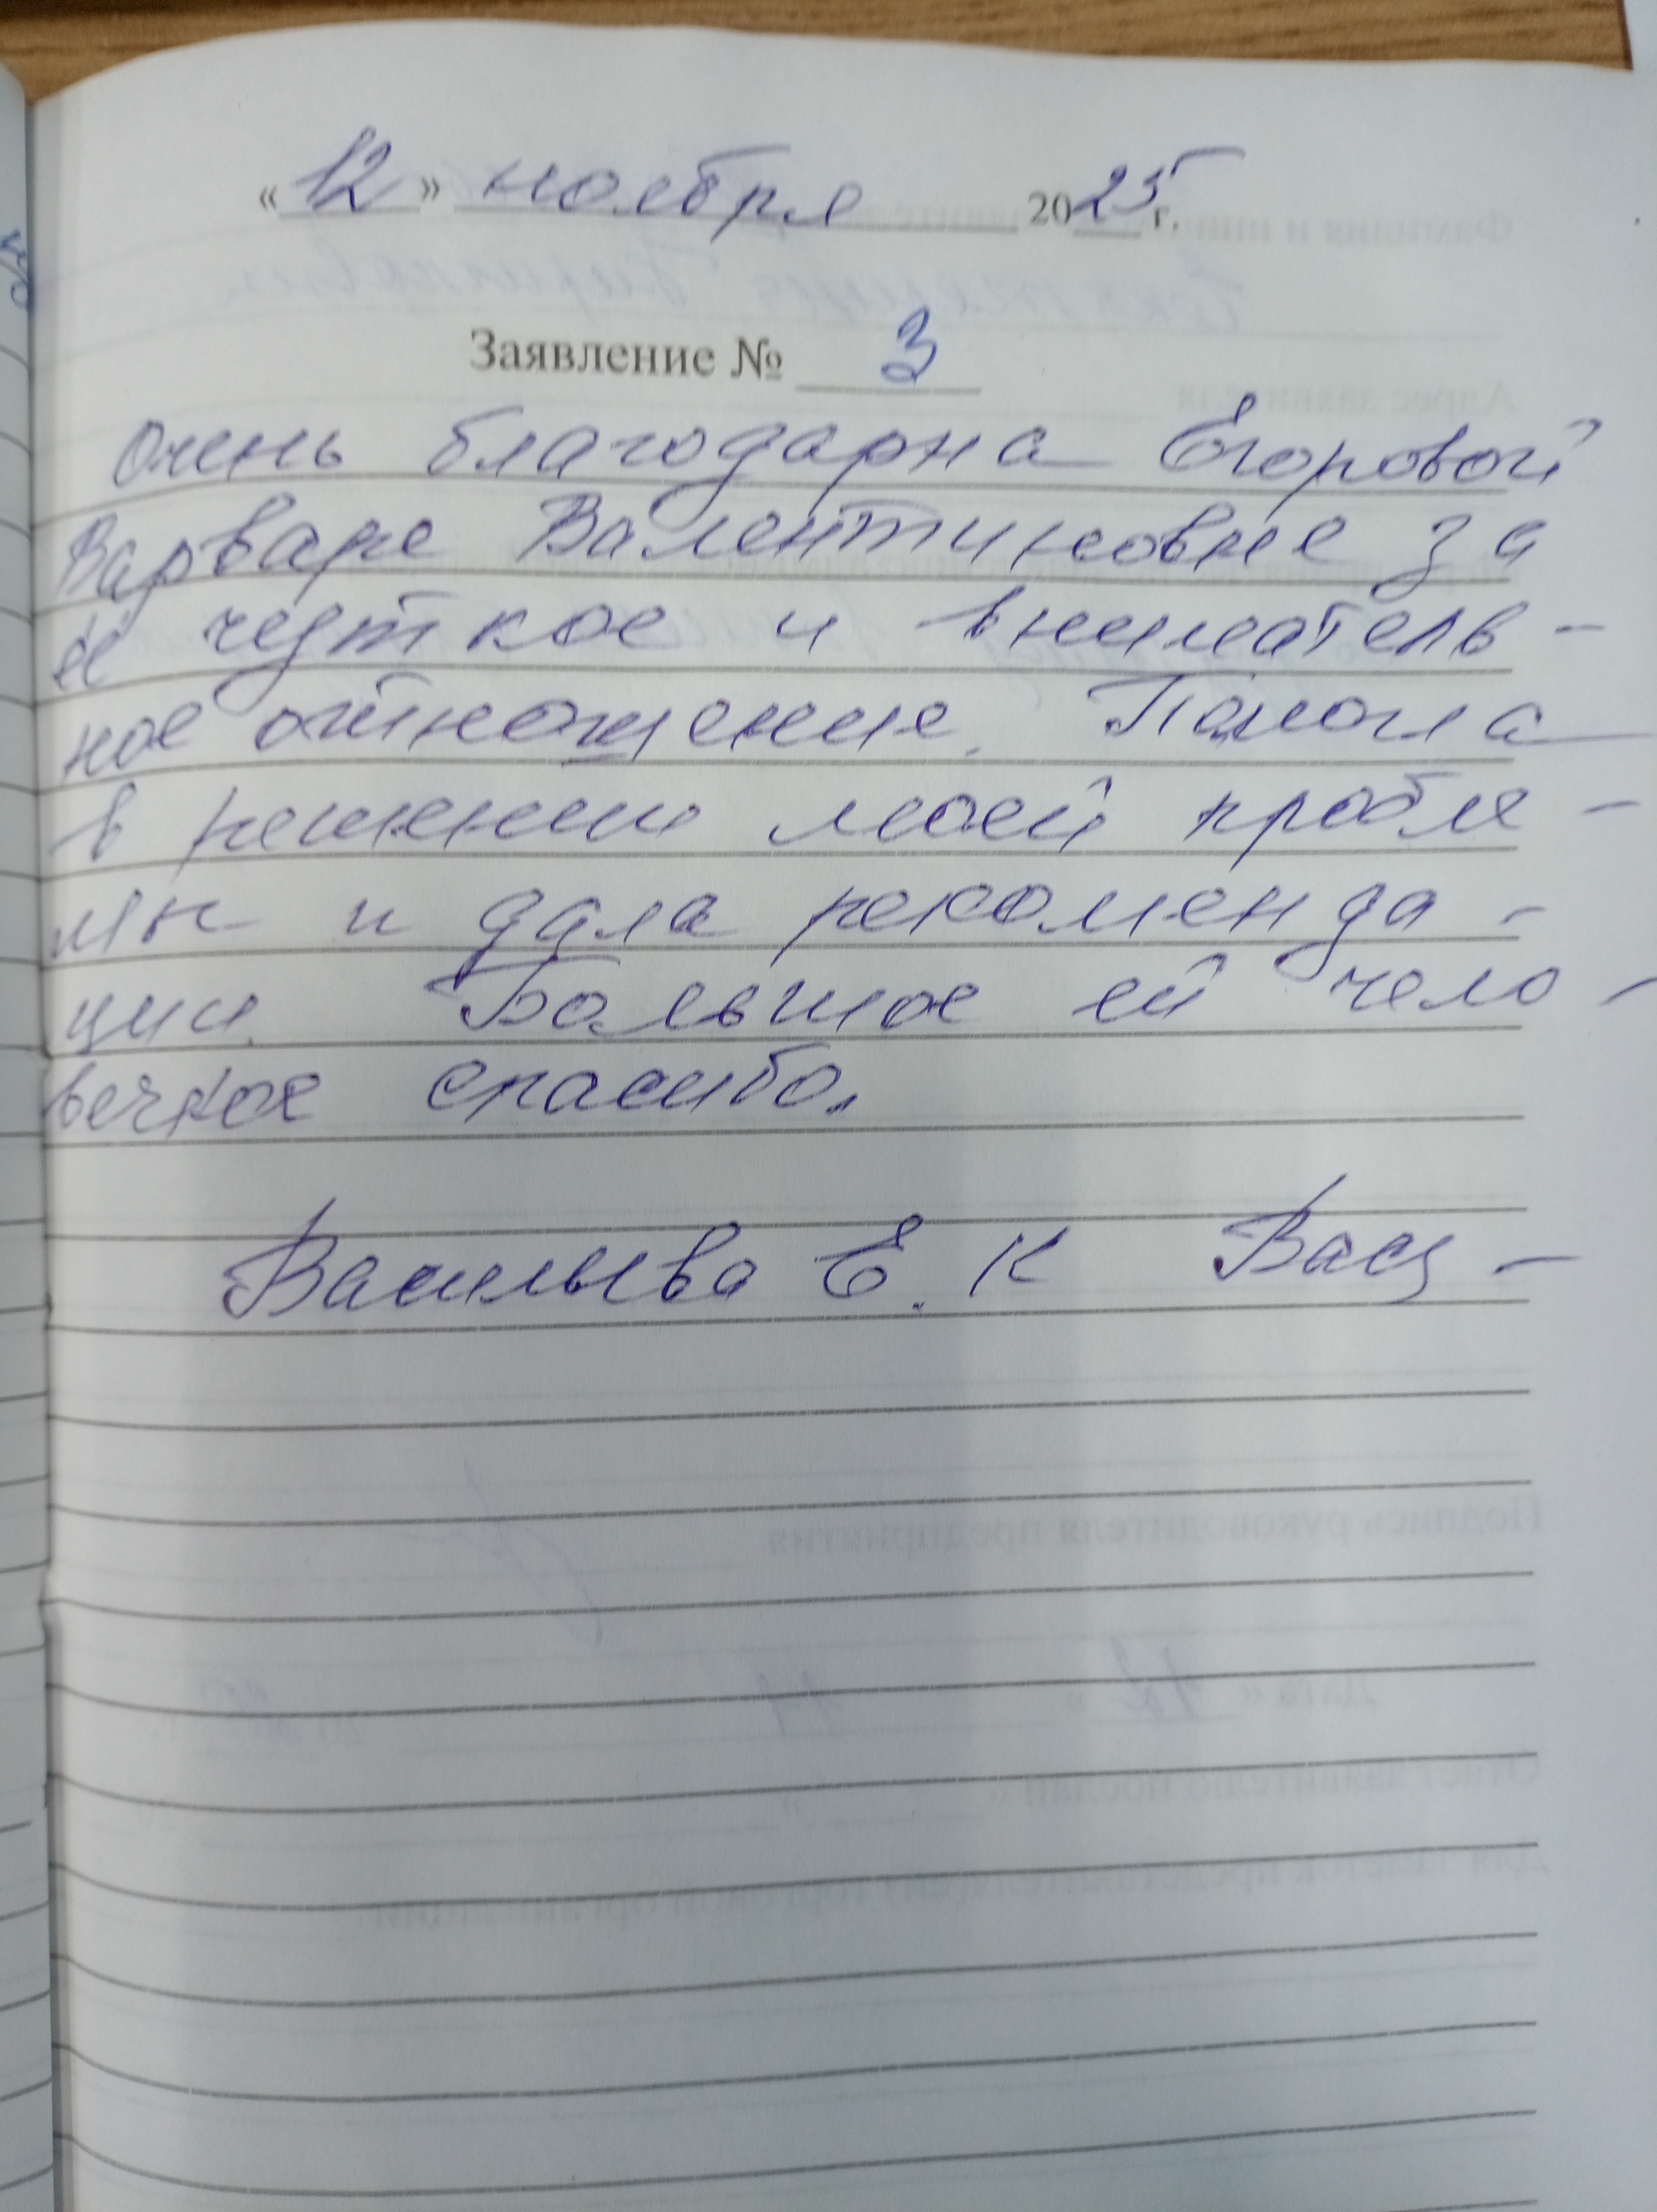 «12» ноября 2025 г.
Заявление № 3
Очень благодарна Егоровой
Варваре Валентиновне за
её чуткое и вниматель-
ное отношение. Помогла
в решении моей пробле-
мы и дала рекоменда-
ции. Большое ей чело-
вечкое спасибо.
Васильева Е. К Васи